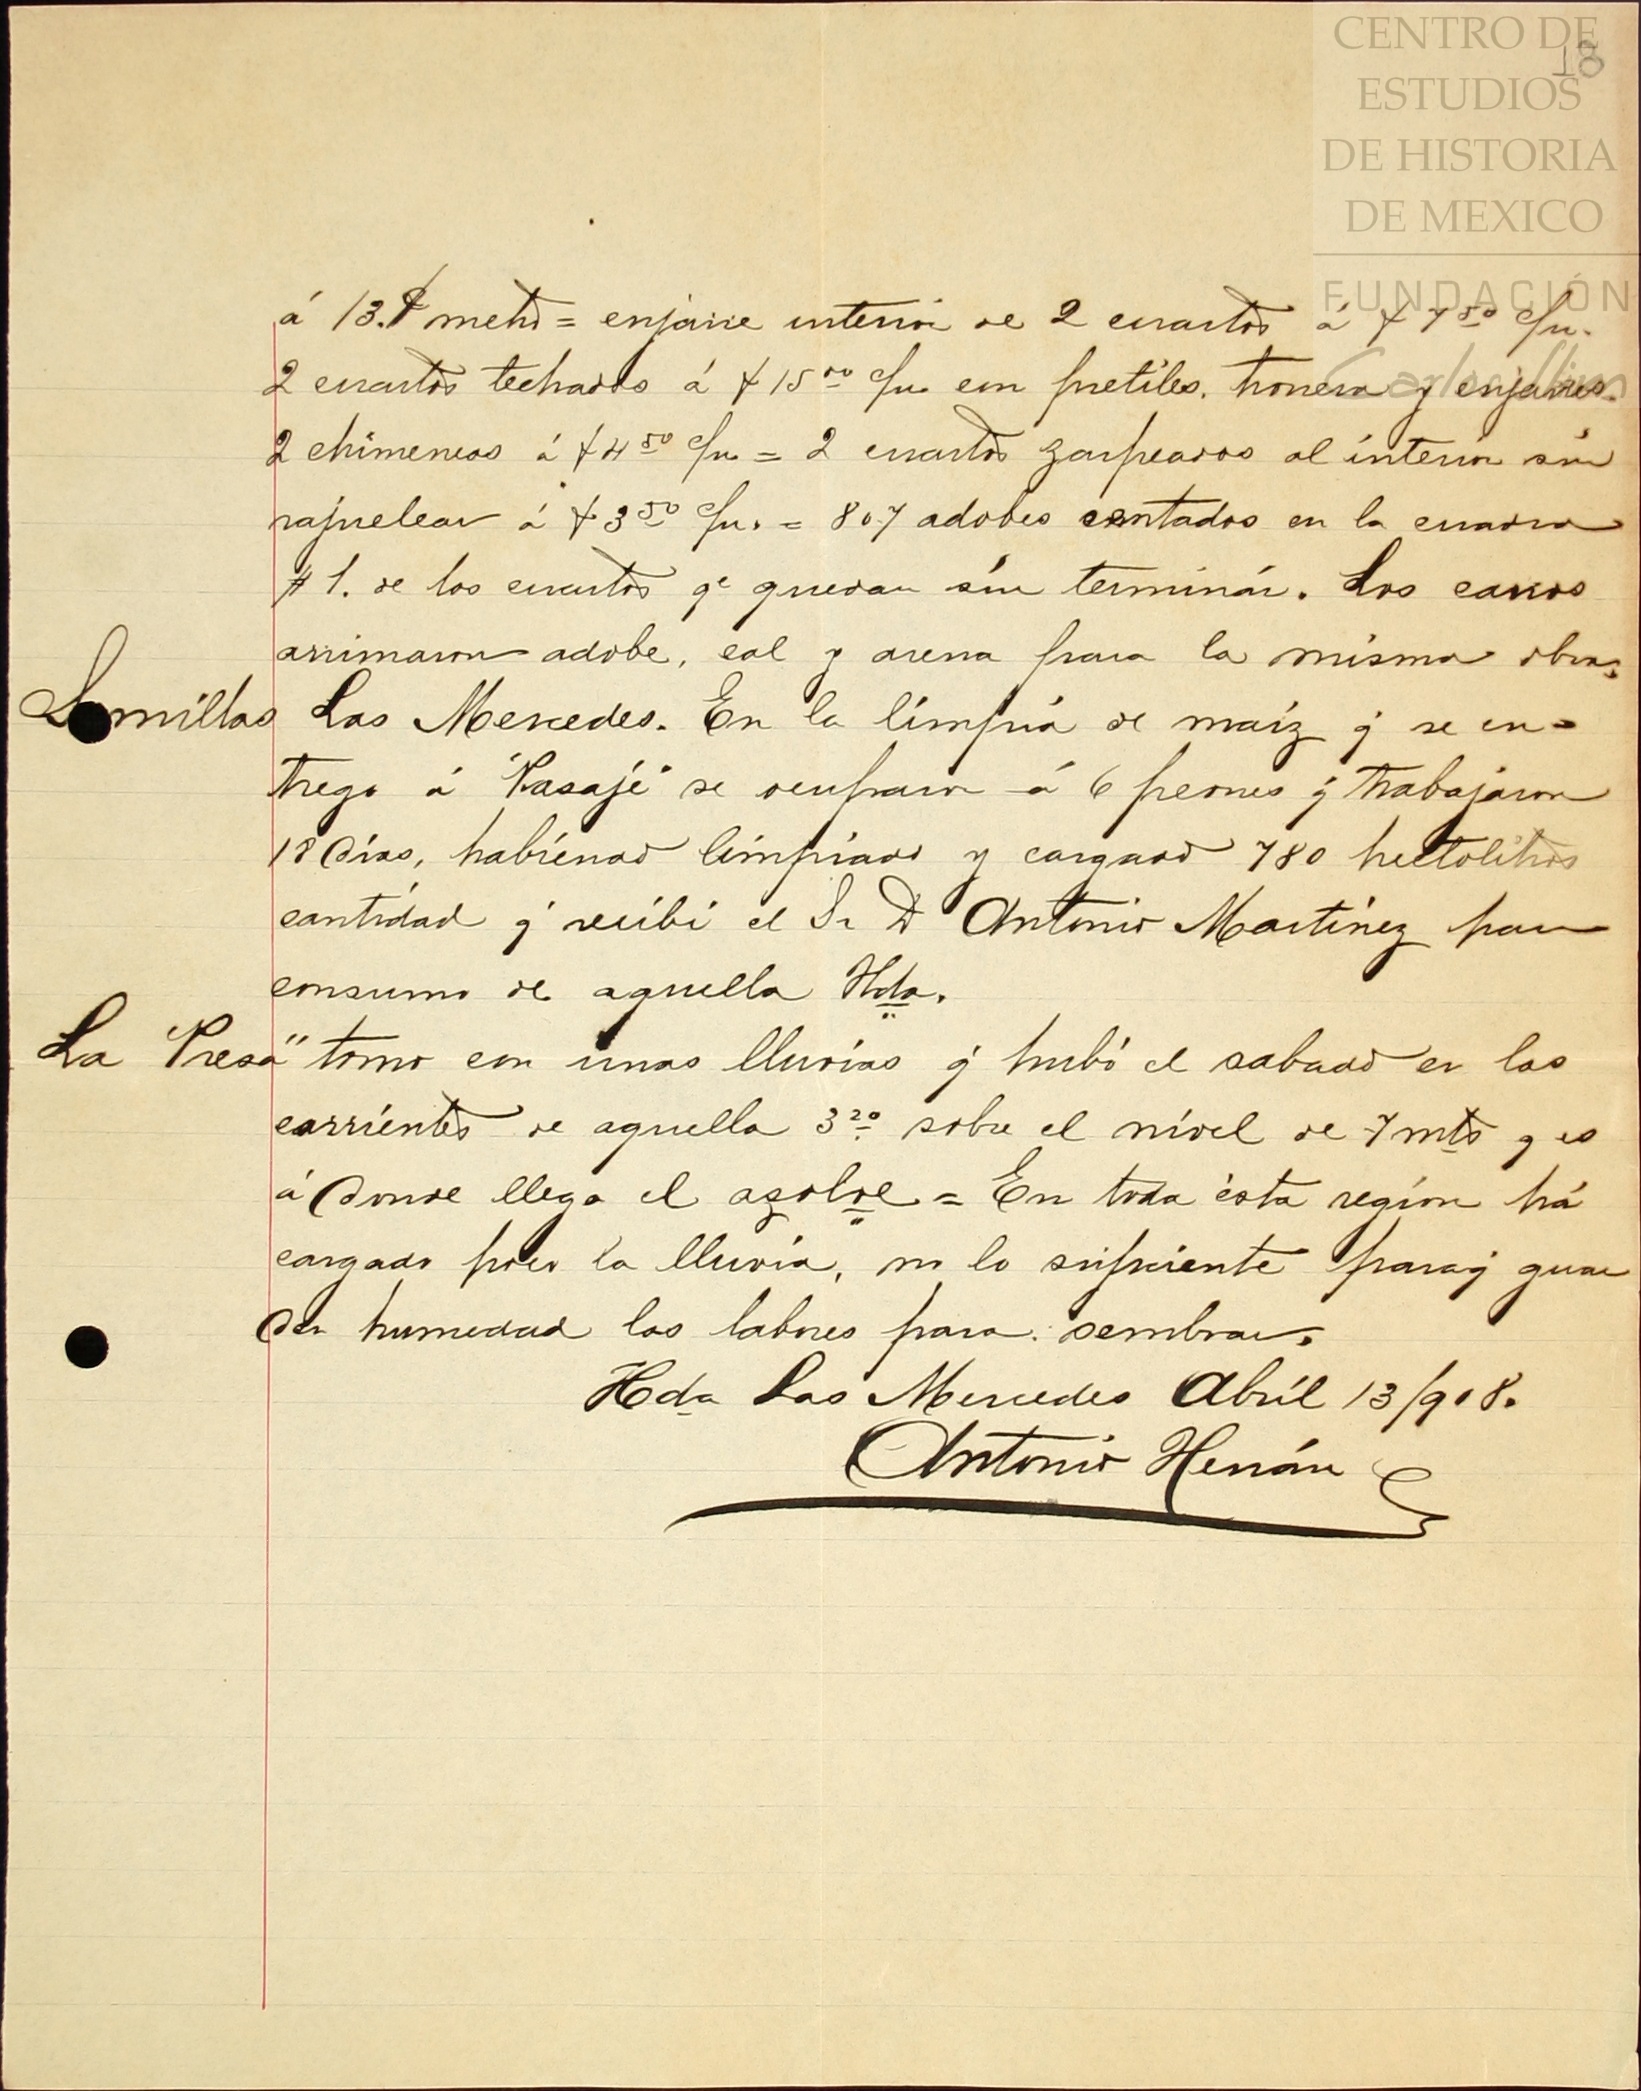 CENTRO DE
ESTUDIOS
DE HISTORIA
DE MEXICO
FUNDACIÓN
Carlos Slim
18
á 13. ¢ metro = enjarre interior de 2 cuartos á $ 7 50 c/u.
2 cuartos techados á $ 15 00 c/u con pretiles, tronera y enjarres.
2 chimeneas á $ 4 50 c/u = 2 cuartos zarpeados al interior sin
rajuelear á $ 3 50 c/u. = 807 adobes centados en la cuadra
# 1. de los cuartos qe quedan sin terminár. Los carros
arrimaron adobe, cal y arena para la misma obra.
Semillas Las Mercedes. En la limpia de maíz q̇ se en=
trego á "Pasaje" se ocuparon á 6 peones q̇ trabajaron
18 dias, habiendo limpiado y cargado 780 hectolitros
cantidad q̇ recibi el Sr D Antonio Martinez para
consumo de aquella Hda.
La Presa" tomo con unas lluvias q̇ hubó el sabado en las
corrientes de aquella 3 20 sobre el nivel de 7 mts q es
á donde llega el azolve = En toda ésta región há
cargado poco la lluvia, no lo suficiente para q̇ guar
den humedad las labores para sembrar.
Hda Las Mercedes Abril 13/908.
Antonio Hernán